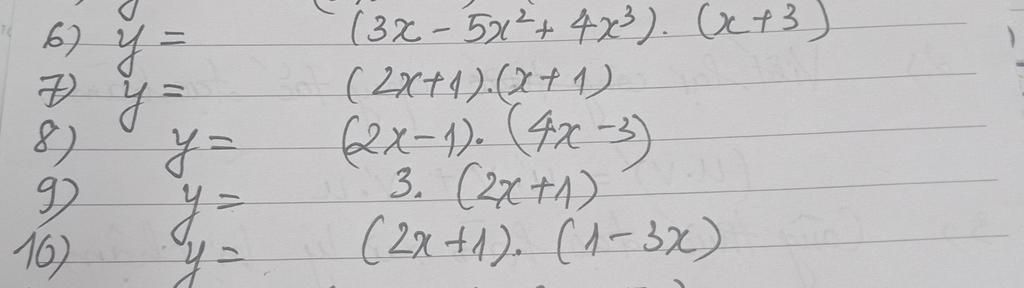 6) y = (3x - 5x² + 4x³). (x+3)
7) y = (2x+1).(x+1)
8) y = (2x-1). (4x-3)
9) y = 3. (2x+1)
10) y = (2x+1). (1-3x)